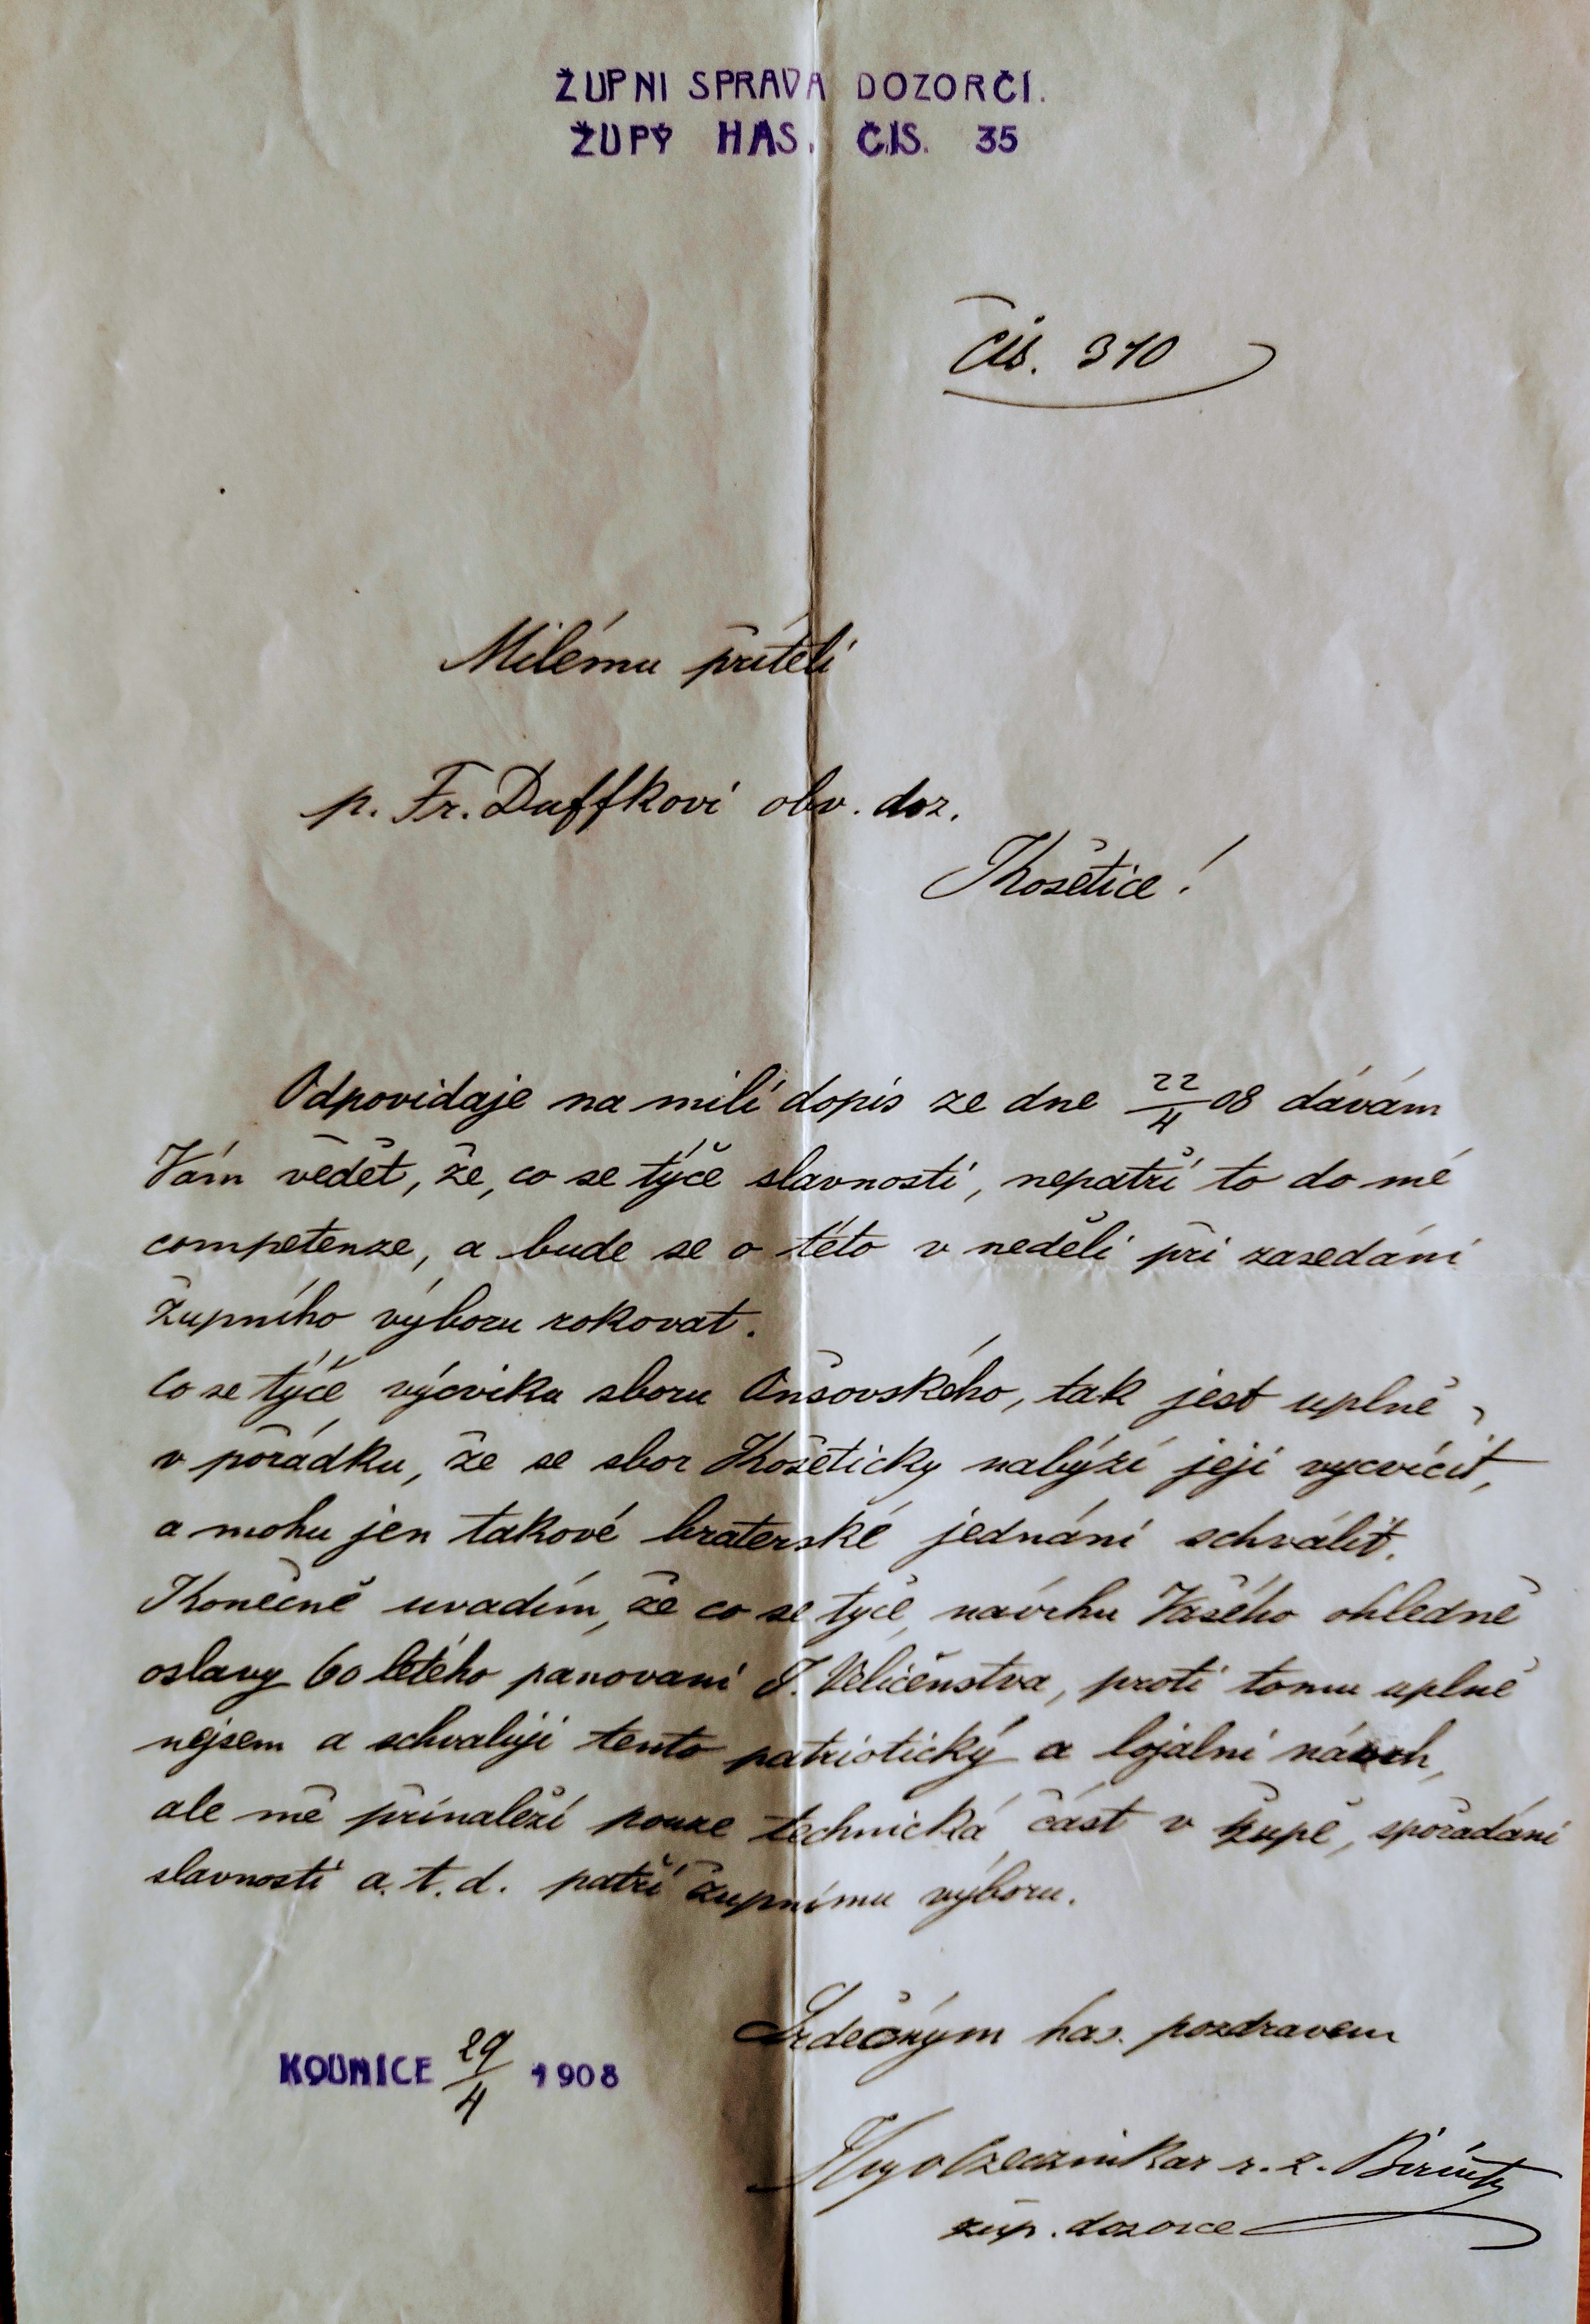 ŽUPNI SPRAVA DOZORČI.
ŽUPY HAS. ČIS. 35
Čis. 310
Milému příteli
p. Fr. Duffkovi obv. doz.
Košetice!
Odpovidaje na milí dopis ze dne 22/4 08 dávám
Vám vědět, že, co se týče slavnosti, nepatří to do mé
competenze, a bude se o této v neděli při zasedání
župního výboru rokovat.
Co se týče výcviku sboru Onšovského, tak jest uplně
v pořádku, že se sbor Košeticky nabýzí jeji vycvičit,
a mohu jen takové braterské jednání schválit.
Konečně uvadím, že co se týče, návrhu Vašého ohledně
oslavy 60 letého panovani J. Veličenstva, proti tomu uplně
nejsem a schvaluji tento patriotický a lojalni návrh,
ale mě přinaleží pouze technická část v župě, spořadáni
slavnosti a. t. d. patří župnímu výboru.
Srdečným has. pozdravem
KOUNICE 29/4 1908
Hugo r. z.
žup. dozorce